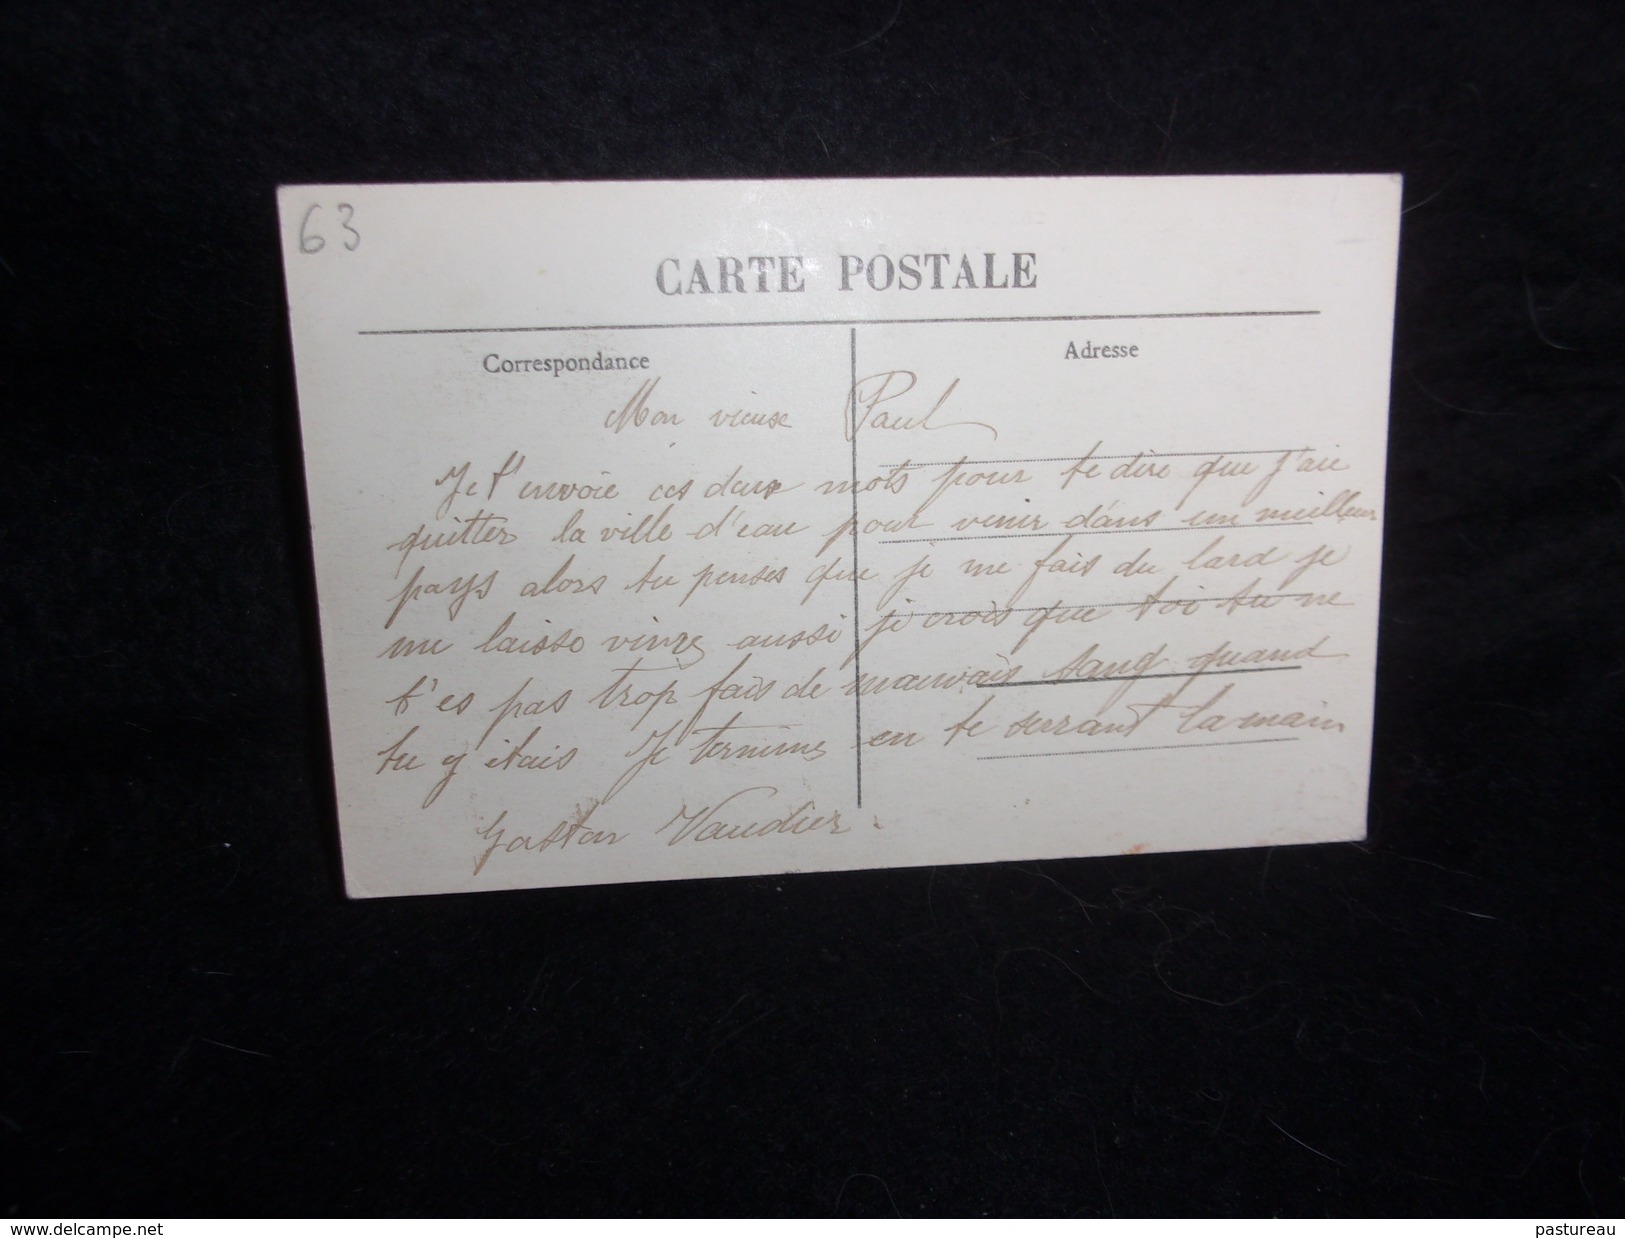 63
CARTE POSTALE
Correspondance
Adresse
Mon vieux Paul
Je t'envoie ces deux mots pour te dire que j'aie
quitter la ville d'eau pour venir dans un meilleur
pays alors tu penses que je me fais du lard je
me laisse vivre aussi je crois que toi tu ne
t'es pas trop fais de mauvais sang quand
tu y étais Je termine en te serrant la main
Gaston Vaudier.
www.delcampe.net
pastureau